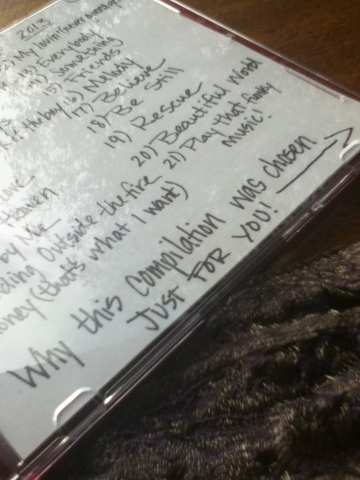 2013
My lovin' (never
13) Everybody
Something
15) Friends
16) Melody
17) Believe
18) Be Still
19) Rescue
20) Beautiful World
21) Play that funky
music!
Heaven
by Me
Outside the fire
money (that's what I want)
Why this compilation was chosen
JUST FOR YOU!